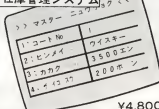 在庫管理システム
>> マスター ニュウリョク <<
1:コード No 1
2:ヒンメイ ウイスキー
3:カカク 3500エン
4. 200ホン
¥4,800